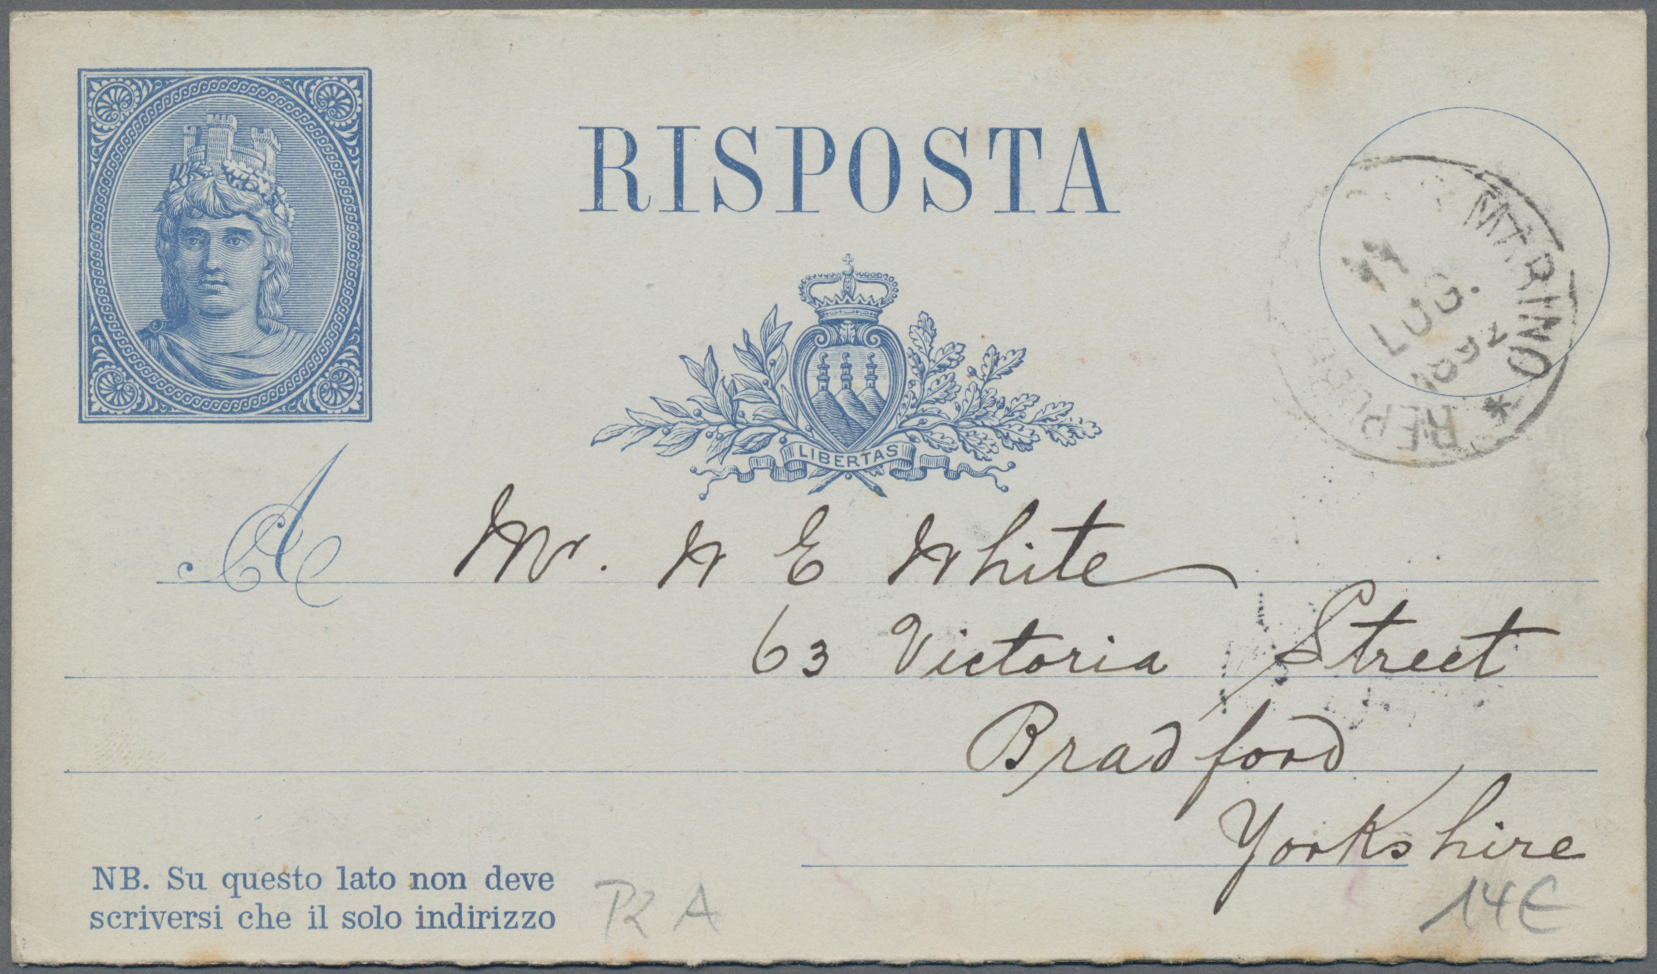 RISPOSTA
MARINO
LUG.
REPU
*
LIBERTAS
A Mr. W E White
63 Victoria Street
Bradford
Yorkshire
NB. Su questo lato non deve
scriversi che il solo indirizzo
14€